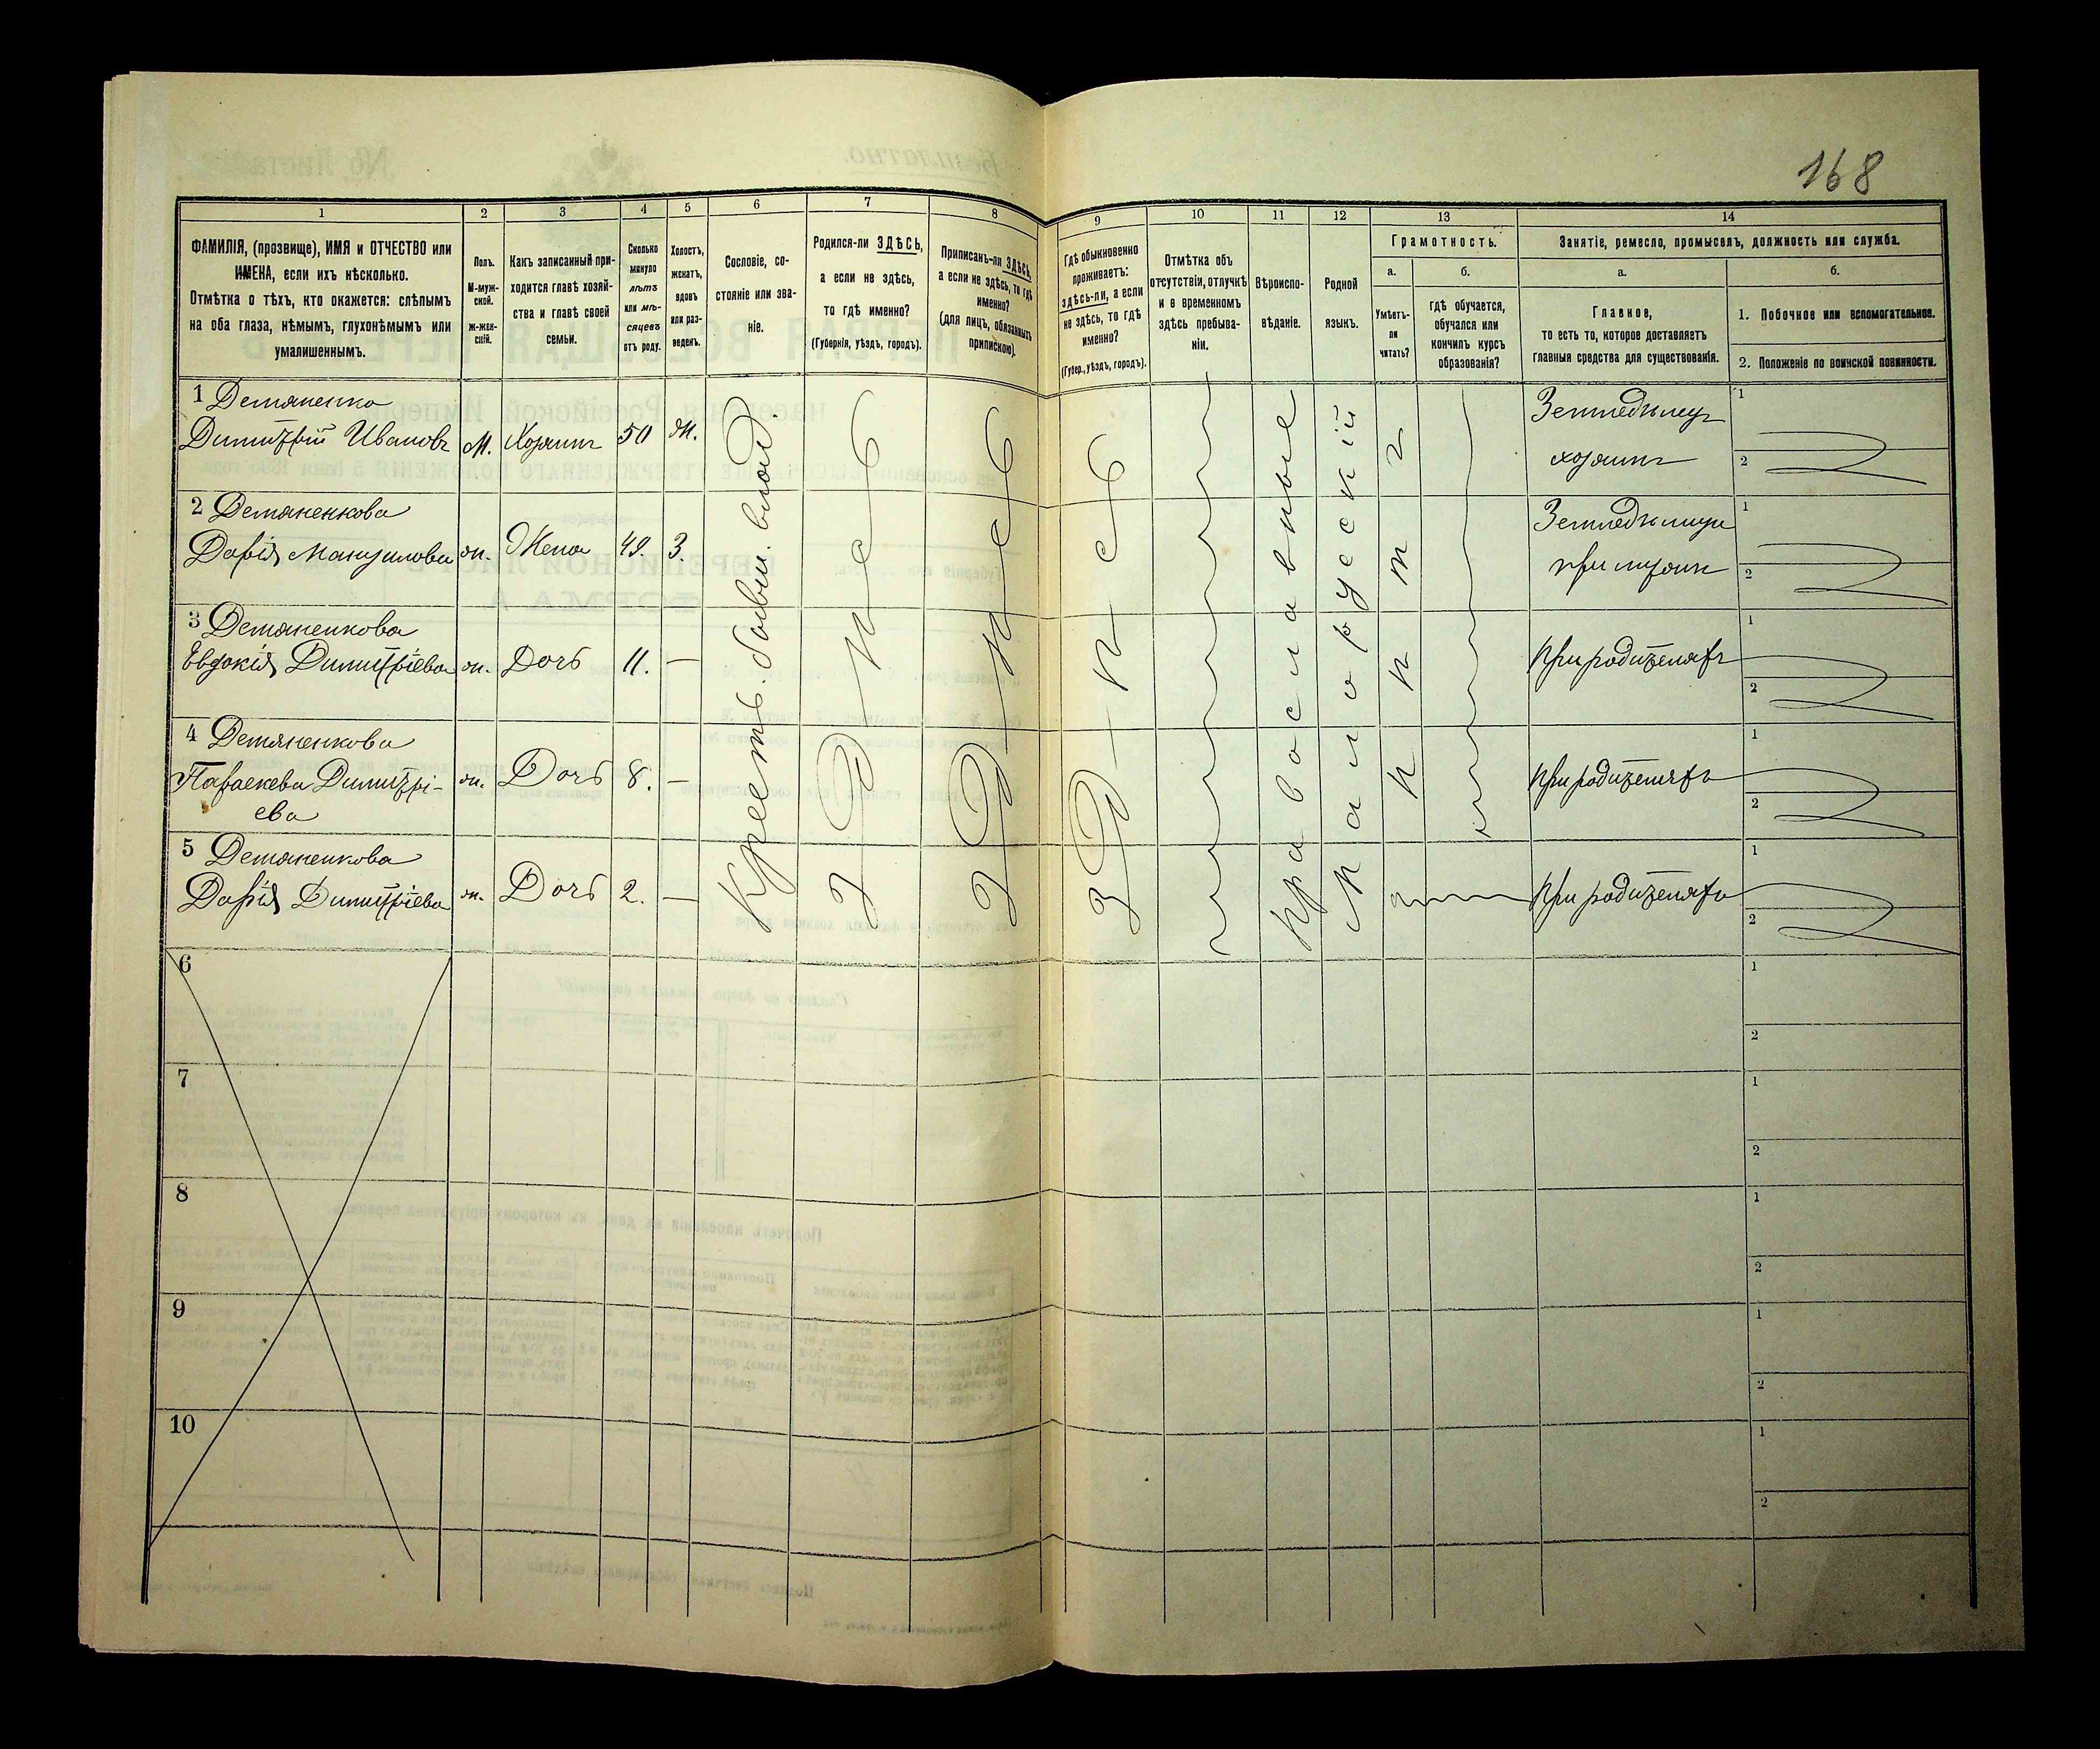 168
1
2
3
4
5
6
7
8
9
10
11
12
13
14
ФАМИЛІЯ, (прозвище), ИМЯ и ОТЧЕСТВО или
ИМЕНА, если ихъ нѣсколько.
Отмѣтка о тѣхъ, кто окажется: слѣпымъ
на оба глаза, нѣмымъ, глухонѣмымъ или
умалишеннымъ.
Полъ.
М-муж-
ской.
ж-жен-
скій.
Какъ записанный при-
ходится главѣ хозяй-
ства и главѣ своей
семьи.
Сколько
минуло
лѣтъ
или мѣ-
сяцевъ
отъ роду.
Холостъ,
женатъ,
вдовъ
или раз-
веденъ.
Сословіе, со-
стояніе или зва-
ніе.
Родился-ли ЗДѢСЬ,
а если не здѣсь,
то гдѣ именно?
(Губернія, уѣздъ, городъ).
Приписанъ-ли ЗДѢСЬ,
а если не здѣсь, то гдѣ
именно?
(для лицъ, обязанныхъ
припискою).
Гдѣ обыкновенно
проживаетъ:
здѣсь-ли, а если
не здѣсь, то гдѣ
именно?
(Губер., уѣздъ, городъ).
Отмѣтка объ
отсутствіи, отлучкѣ
и о временномъ
здѣсь пребыва-
ніи.
Вѣроиспо-
вѣданіе.
Родной
языкъ.
Грамотность.
а.
б.
Умѣетъ-
ли
читать?
гдѣ обучается,
обучался или
кончилъ курсъ
образованія?
Занятіе, ремесло, промыселъ, должность или служба.
а.
б.
Главное,
то есть то, которое доставляетъ
главныя средства для существованія.
1. Побочное или вспомогательное.
2. Положеніе по воинской повинности.
1 Демяненко
Димитрій Ивановъ М. Хозяинъ 50 ж.
Земледѣлецъ
хозяинъ
1
2
2 Демяненкова
Дарія ж. Жена 49. З.
Земледѣлица
при
1
2
3 Демяненкова
Евдокія Димитріева ж. Дочь 11. —
При родителяхъ
1
2
4 Демяненкова
Параскева Димитрі- ж. Дочь 8. —
ева
При родителяхъ
1
2
5 Демяненкова
Дарія Димитріева ж. Дочь 2. —
При родителяхъ
1
2
Крестъ.
Здѣсь
Здѣсь
Здѣсь
Православные
Малорусскій
6
1
2
7
1
2
8
1
2
9
1
2
10
1
2